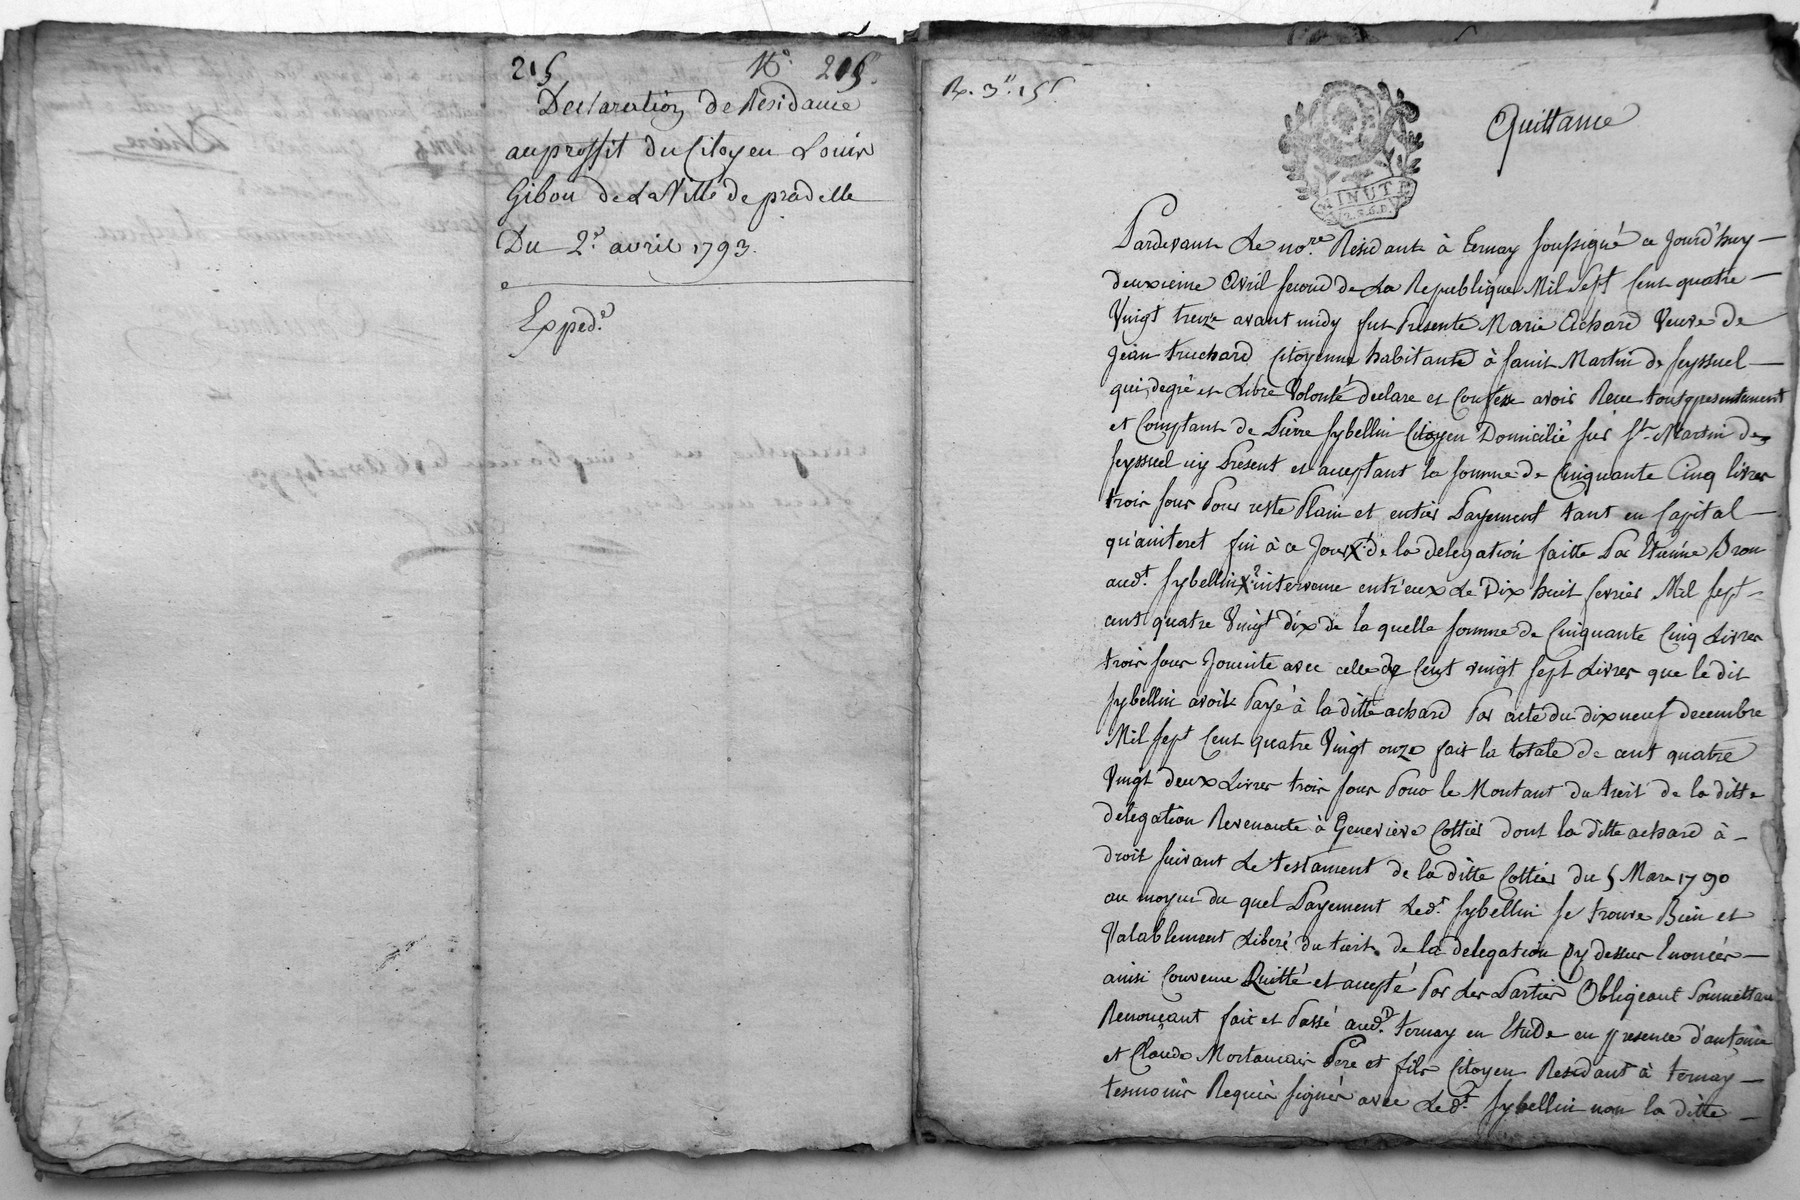 215 N° 215.
Declaration de Residance
au proffit du Citoyen Louis
Gibou de La Ville de pradelle
Du 2.e avril 1793.
Exped.e
R. 3.tt 15s
Quittance
MINUTE
Pardevant Le no.re Residant à ternay soussigné ce jourd'huy
deuxieme avril second de La Republique Mil Sept Cent quatre
Vingt treize avant midy fut Presente Marie Achard Veuve de
jean truchard Citoyenne habitante à saint Martin de seyssuel
qui degré et Libre Volonté declare et Confesse avoir Receu tout presentement
et Comptant de Pierre sybellin Citoyen Domicilié sur St. Martin de
seyssuel icy Present et acceptant la somme de Cinquante Cinq livres
trois sous Pour reste Plain et entier Payement tant en Capital
qu'interet fin à ce Jour X de la delegation faitte Par Etienne Bron
aud.t sybellin X intervenue entr'eux Le Dix huit fevrier Mil sept
cent quatre Vingt dix de la quelle somme de Cinquante Cinq Livres
trois sous Jointe avec celle de Cent vingt sept Livres que le dit
sybellin avoit Payé à la ditte achard Par acte du dix neuf decembre
Mil sept Cent quatre Vingt onze fait la totale de cent quatre
Vingt deux Livres trois sous Pour le Montant du tiers de la ditte
delegation Revenante à Genevieve Cottier dont la ditte achard à
droit suivant Le testament de la ditte Cottier du 5 Mars 1790
au moyen du quel Payement Led.t sybellin se trouve Bien et
Valablement Liberé du tiers de la delegation cy dessus Enoncée
ainsi Convenu Quitté et accepté Par Les Parties Obligeant Soumettant
Renonçant fait et Passé aud.t ternay en Etude en presence d'antoine
et Claude Mortamais Pere et fils Citoyen Residant à ternay
tesmoins Requis signés avec Led.t sybellin non la ditte